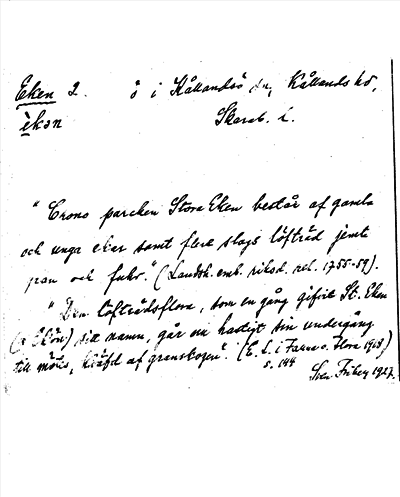 Eken 2. ö i Kållandsö sn, Kållands hd,
èkən Skarab. l.
"Crono parcken Stora Eken består af gamla
och unga ekar samt flere slags löfträd jemte
gran och furu." (Landsh. emb. riksd. rel. 1755-59).
"Den löfträdsflora, som en gång gifvit St. Eken
(= Ekön) sitt namn, går nu hastigt sin undergång
till mötes, kväfd af granskogen". (E. L. i Fauna o. Flora 1918)
s. 144
Sven Friberg 1927.